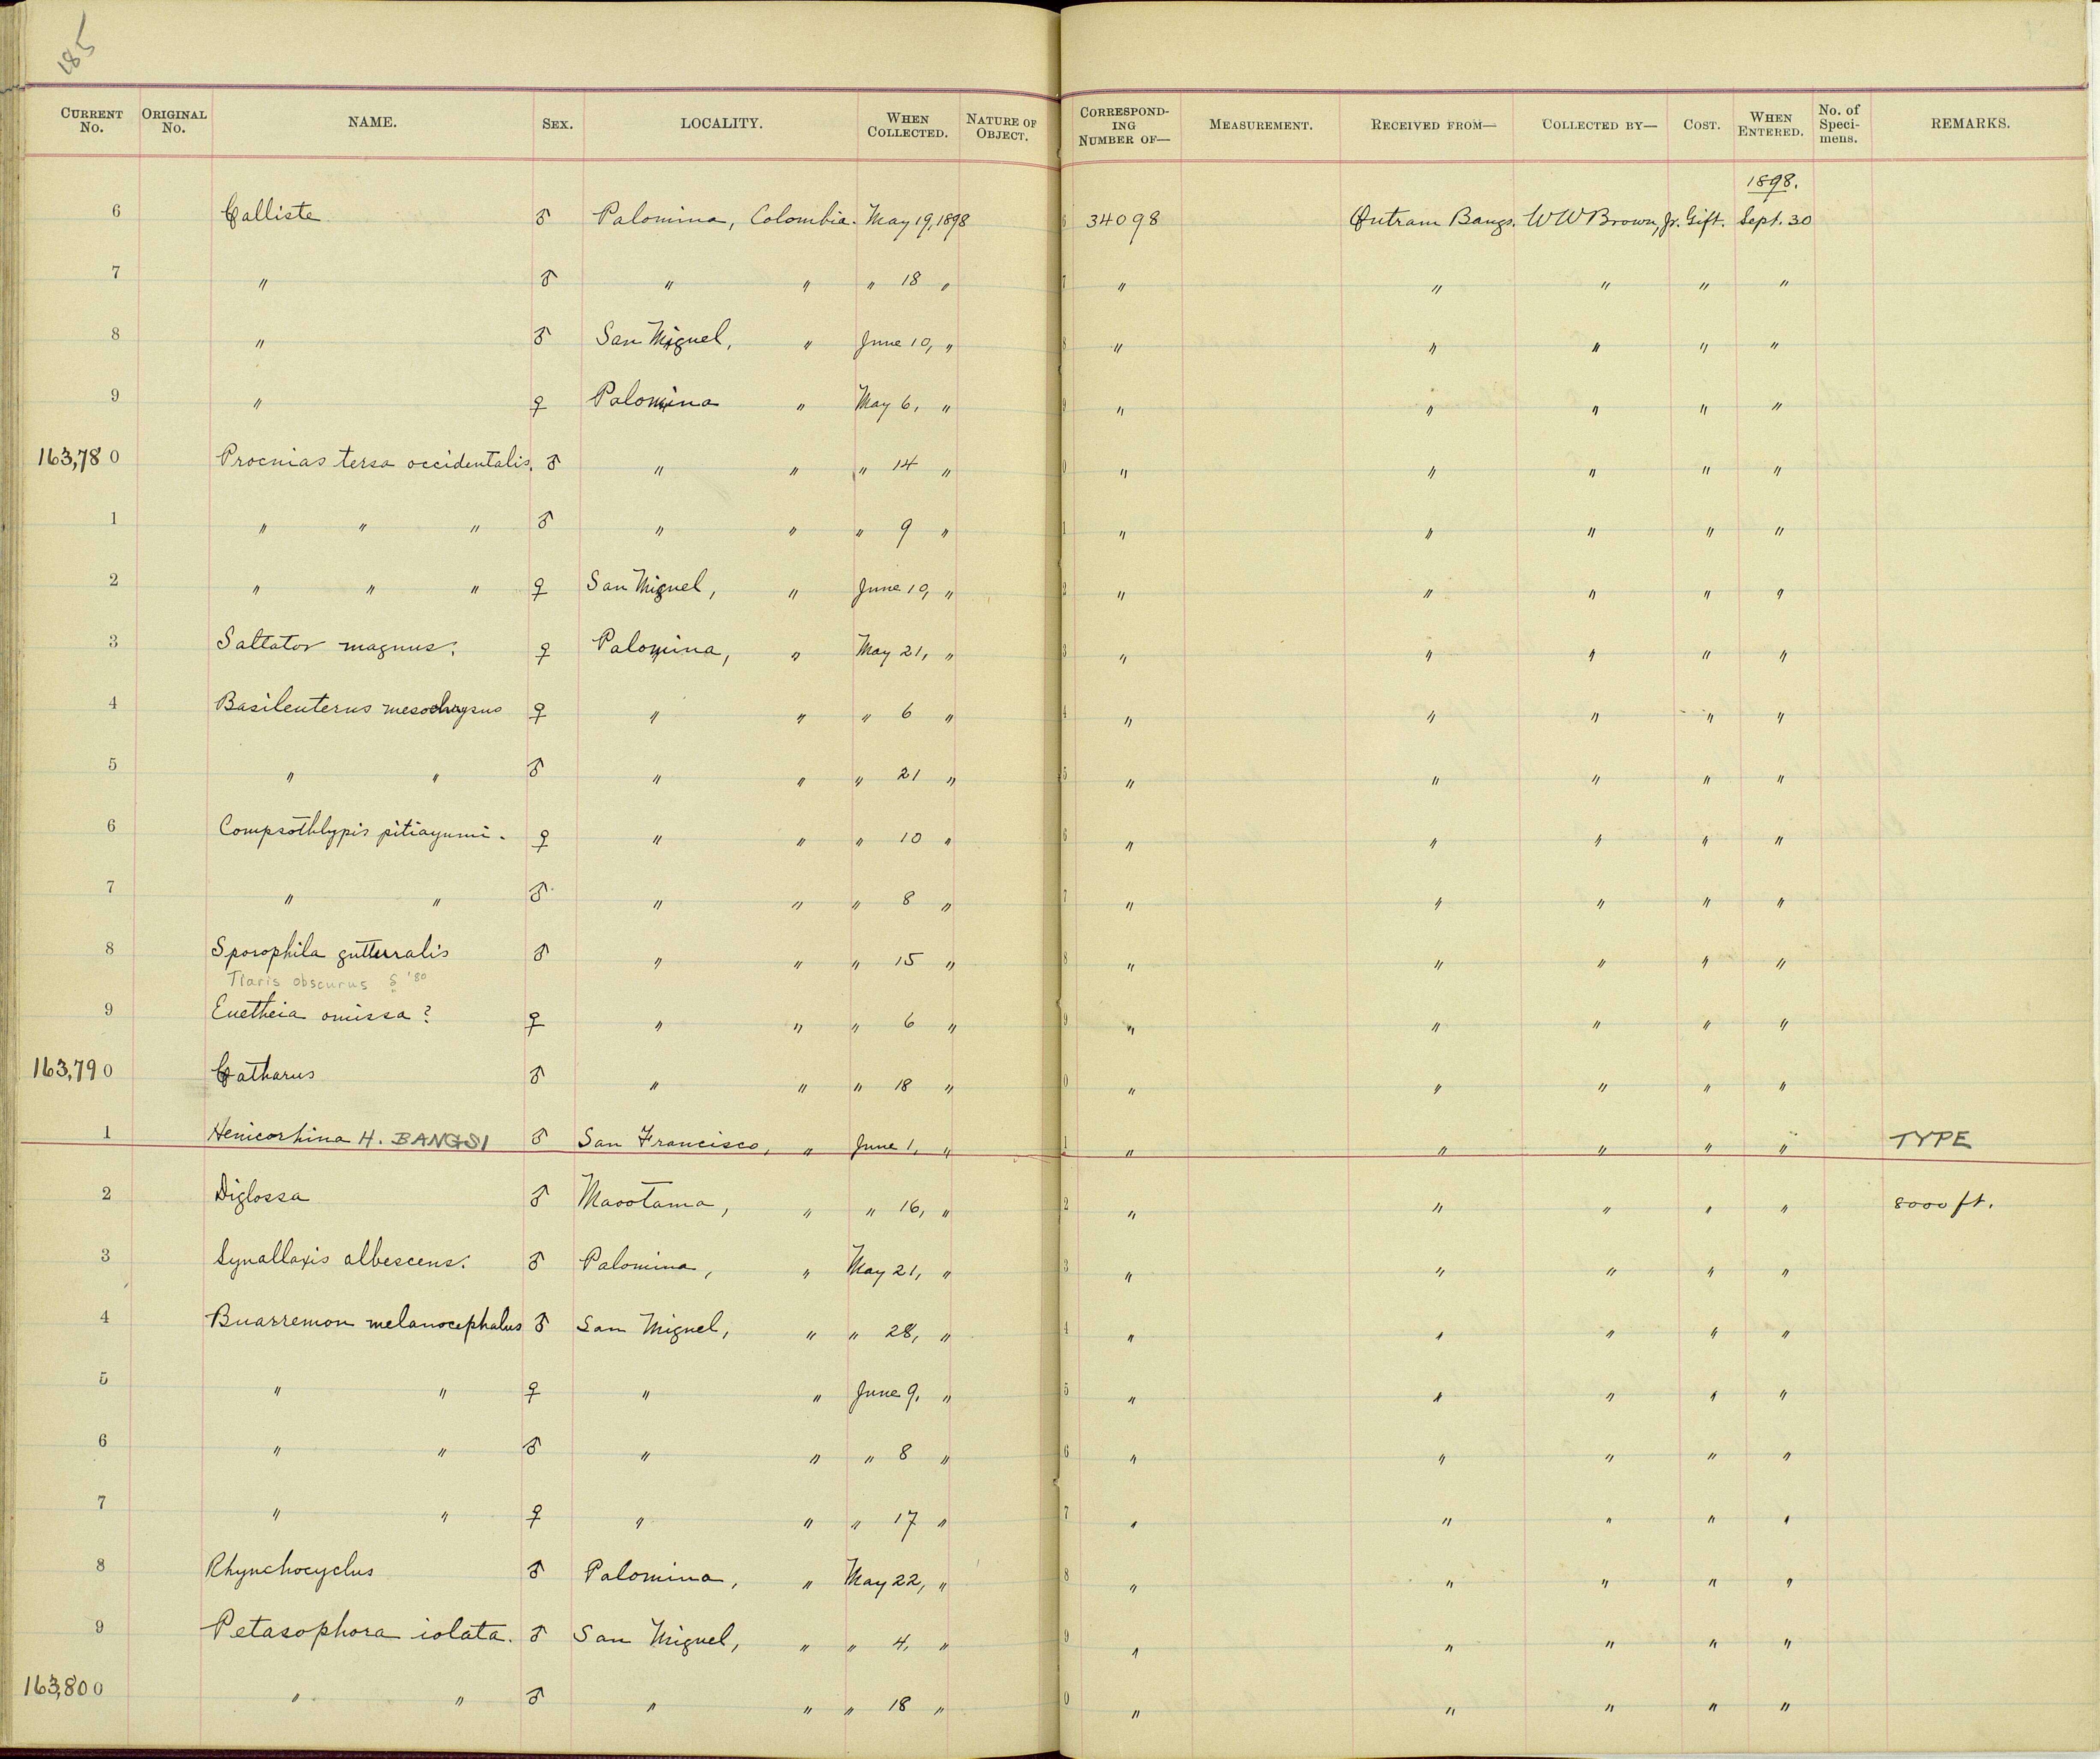 185
CURRENT No. ORIGINAL No. NAME. SEX. LOCALITY. WHEN COLLECTED. NATURE OF OBJECT. CORRESPONDING NUMBER OF— MEASUREMENT. RECEIVED FROM— COLLECTED BY— COST. WHEN ENTERED. No. of Specimens. REMARKS.
1898.
6 Calliste ♂ Palomina, Colombia. May 19, 1898 6 34098 Outram Bangs. W W Brown, Jr. Gift. Sept. 30
7 " ♂ " " " 18 " 7 " " " " "
8 " ♂ San Miguel, " June 10, " 8 " " " " "
9 " ♀ Palomina " May 6, " 9 " " " " "
163,780 Procnias tersa occidentalis. ♂ " " " 14 " 0 " " " " "
1 " " " ♂ " " " 9 " 1 " " " " "
2 " " " ♀ San Miguel, " June 10, " 2 " " " " "
3 Saltator magnus. ♀ Palomina, " May 21, " 3 " " " " "
4 Basileuterus mesochrysus ♀ " " " 6 " 4 " " " " "
5 " " ♂ " " " 21 " 5 " " " " "
6 Compsothlypis pitiayumi. ♀ " " " 10 " 6 " " " " "
7 " " ♂ " " " 8 " 7 " " " " "
8 Sporophila gutturalis ♂ " " " 15 " 8 " " " " "
Tiaris obscurus '80
9 Euetheia omissa? ♀ " " " 6 " 9 " " " " "
163,790 Catharus ♂ " " " 18 " 0 " " " " "
1 Henicorhina H. BANGSI ♂ San Francisco, " June 1, " 1 " " " " " TYPE
2 Diglossa ♂ Macotama, " " 16, " 2 " " " " " 8000 ft.
3 Synallaxis albescens. ♂ Palomina, " May 21, " 3 " " " " "
4 Buarremon melanocephalus ♂ San Miguel, " " 28, " 4 " " " " "
5 " " ♀ " " June 9, " 5 " " " " "
6 " " ♂ " " " 8 " 6 " " " " "
7 " " ♀ " " " 17 " 7 " " " " "
8 Rhynchocyclus ♂ Palomina, " May 22, " 8 " " " " "
9 Petasophora iolata. ♂ San Miguel, " " 4, " 9 " " " " "
163,800 " " ♂ " " " 18 " 0 " " " " "